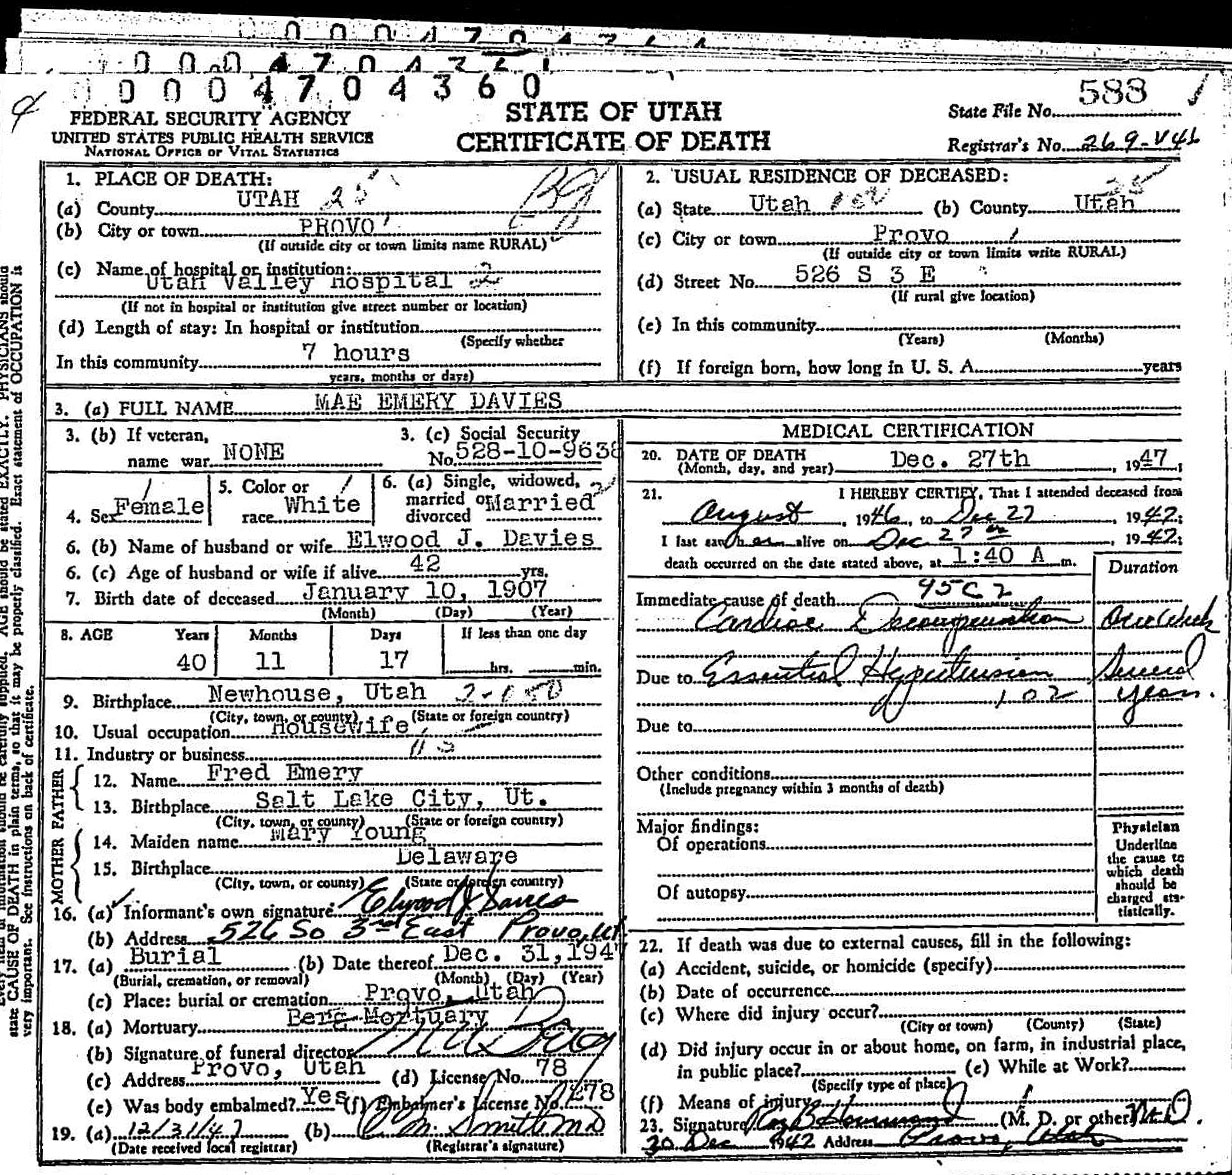 0 0 0 4 7 0 4 3 6 0
FEDERAL SECURITY AGENCY
UNITED STATES PUBLIC HEALTH SERVICE
NATIONAL OFFICE OF VITAL STATISTICS
STATE OF UTAH
CERTIFICATE OF DEATH
State File No. 588
Registrar's No. 269-V46
1. PLACE OF DEATH:
(a) County UTAH 25
(b) City or town PROVO
(If outside city or town limits name RURAL)
(c) Name of hospital or institution:
Utah Valley Hospital 2
(If not in hospital or institution give street number or location)
(d) Length of stay: In hospital or institution
(Specify whether
In this community 7 hours
years, months or days)
2. USUAL RESIDENCE OF DECEASED:
25
(a) State Utah (b) County Utah
(c) City or town Provo
(If outside city or town limits write RURAL)
(d) Street No. 526 S 3 E
(If rural give location)
(e) In this community
(Years) (Months)
(f) If foreign born, how long in U. S. A. years
3. (a) FULL NAME MAE EMERY DAVIES
3. (b) If veteran, name war NONE
3. (c) Social Security No. 528-10-9638
4. Sex Female
5. Color or race White
6. (a) Single, widowed, married or divorced Married
6. (b) Name of husband or wife Elwood J. Davies
6. (c) Age of husband or wife if alive 42 yrs.
7. Birth date of deceased January 10, 1907
(Month) (Day) (Year)
8. AGE Years Months Days If less than one day
40 11 17 hrs. min.
9. Birthplace Newhouse, Utah
(City, town, or county) (State or foreign country)
10. Usual occupation Housewife
11. Industry or business
FATHER
12. Name Fred Emery
13. Birthplace Salt Lake City, Ut.
(City, town, or county) (State or foreign country)
MOTHER
14. Maiden name Mary Young
15. Birthplace Delaware
(City, town, or county) (State or foreign country)
16. (a) Informant's own signature Elwood J Davies
(b) Address 526 So 3rd East Provo, Ut
17. (a) Burial (b) Date thereof Dec. 31, 1947
(Burial, cremation, or removal) (Month) (Day) (Year)
(c) Place: burial or cremation Provo, Utah
18. (a) Mortuary Berg Mortuary
(b) Signature of funeral director
(c) Address Provo, Utah (d) License No. 78
(e) Was body embalmed? Yes (f) Embalmer's License No. 278
19. (a) 12/31/47 (b) M. Smith MD
(Date received local registrar) (Registrar's signature)
MEDICAL CERTIFICATION
20. DATE OF DEATH
(Month, day, and year) Dec. 27th, 1947;
21. I HEREBY CERTIFY, That I attended deceased from
August, 1946, to Dec 27 1947;
I last saw her alive on Dec 27 1947;
death occurred on the date stated above, at 1:40 A m.
Duration
Immediate cause of death 95C2
Cardiac Decompensation One Week
Due to Essential Hypertension Several
102 years.
Due to
Other conditions
(Include pregnancy within 3 months of death)
Major findings:
Of operations
Of autopsy
Physician
Underline
the cause to
which death
should be
charged sta-
tistically.
22. If death was due to external causes, fill in the following:
(a) Accident, suicide, or homicide (specify)
(b) Date of occurrence
(c) Where did injury occur?
(City or town) (County) (State)
(d) Did injury occur in or about home, on farm, in industrial place,
in public place? (e) While at Work?
(Specify type of place)
(f) Means of injury
23. Signature (M. D. or other) M.D.
30 Dec 1947 Address Provo, Utah
state CAUSE OF DEATH in plain terms, so that it may be properly classified. Exact statement of OCCUPATION is
very important. See instructions on back of certificate.